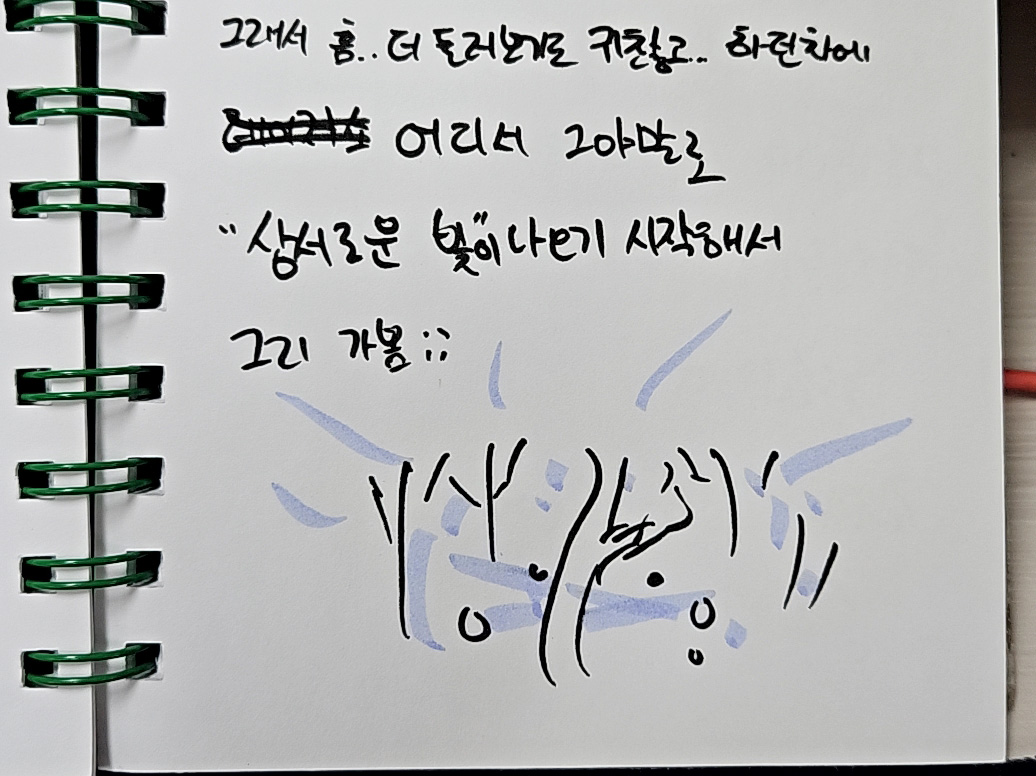 그래서 흠.. 더 둘러보기도 귀찮고.. 하던차에
어디서 그야말로
"상서로운 빛"이 나오기 시작해서
그리 가봄;;